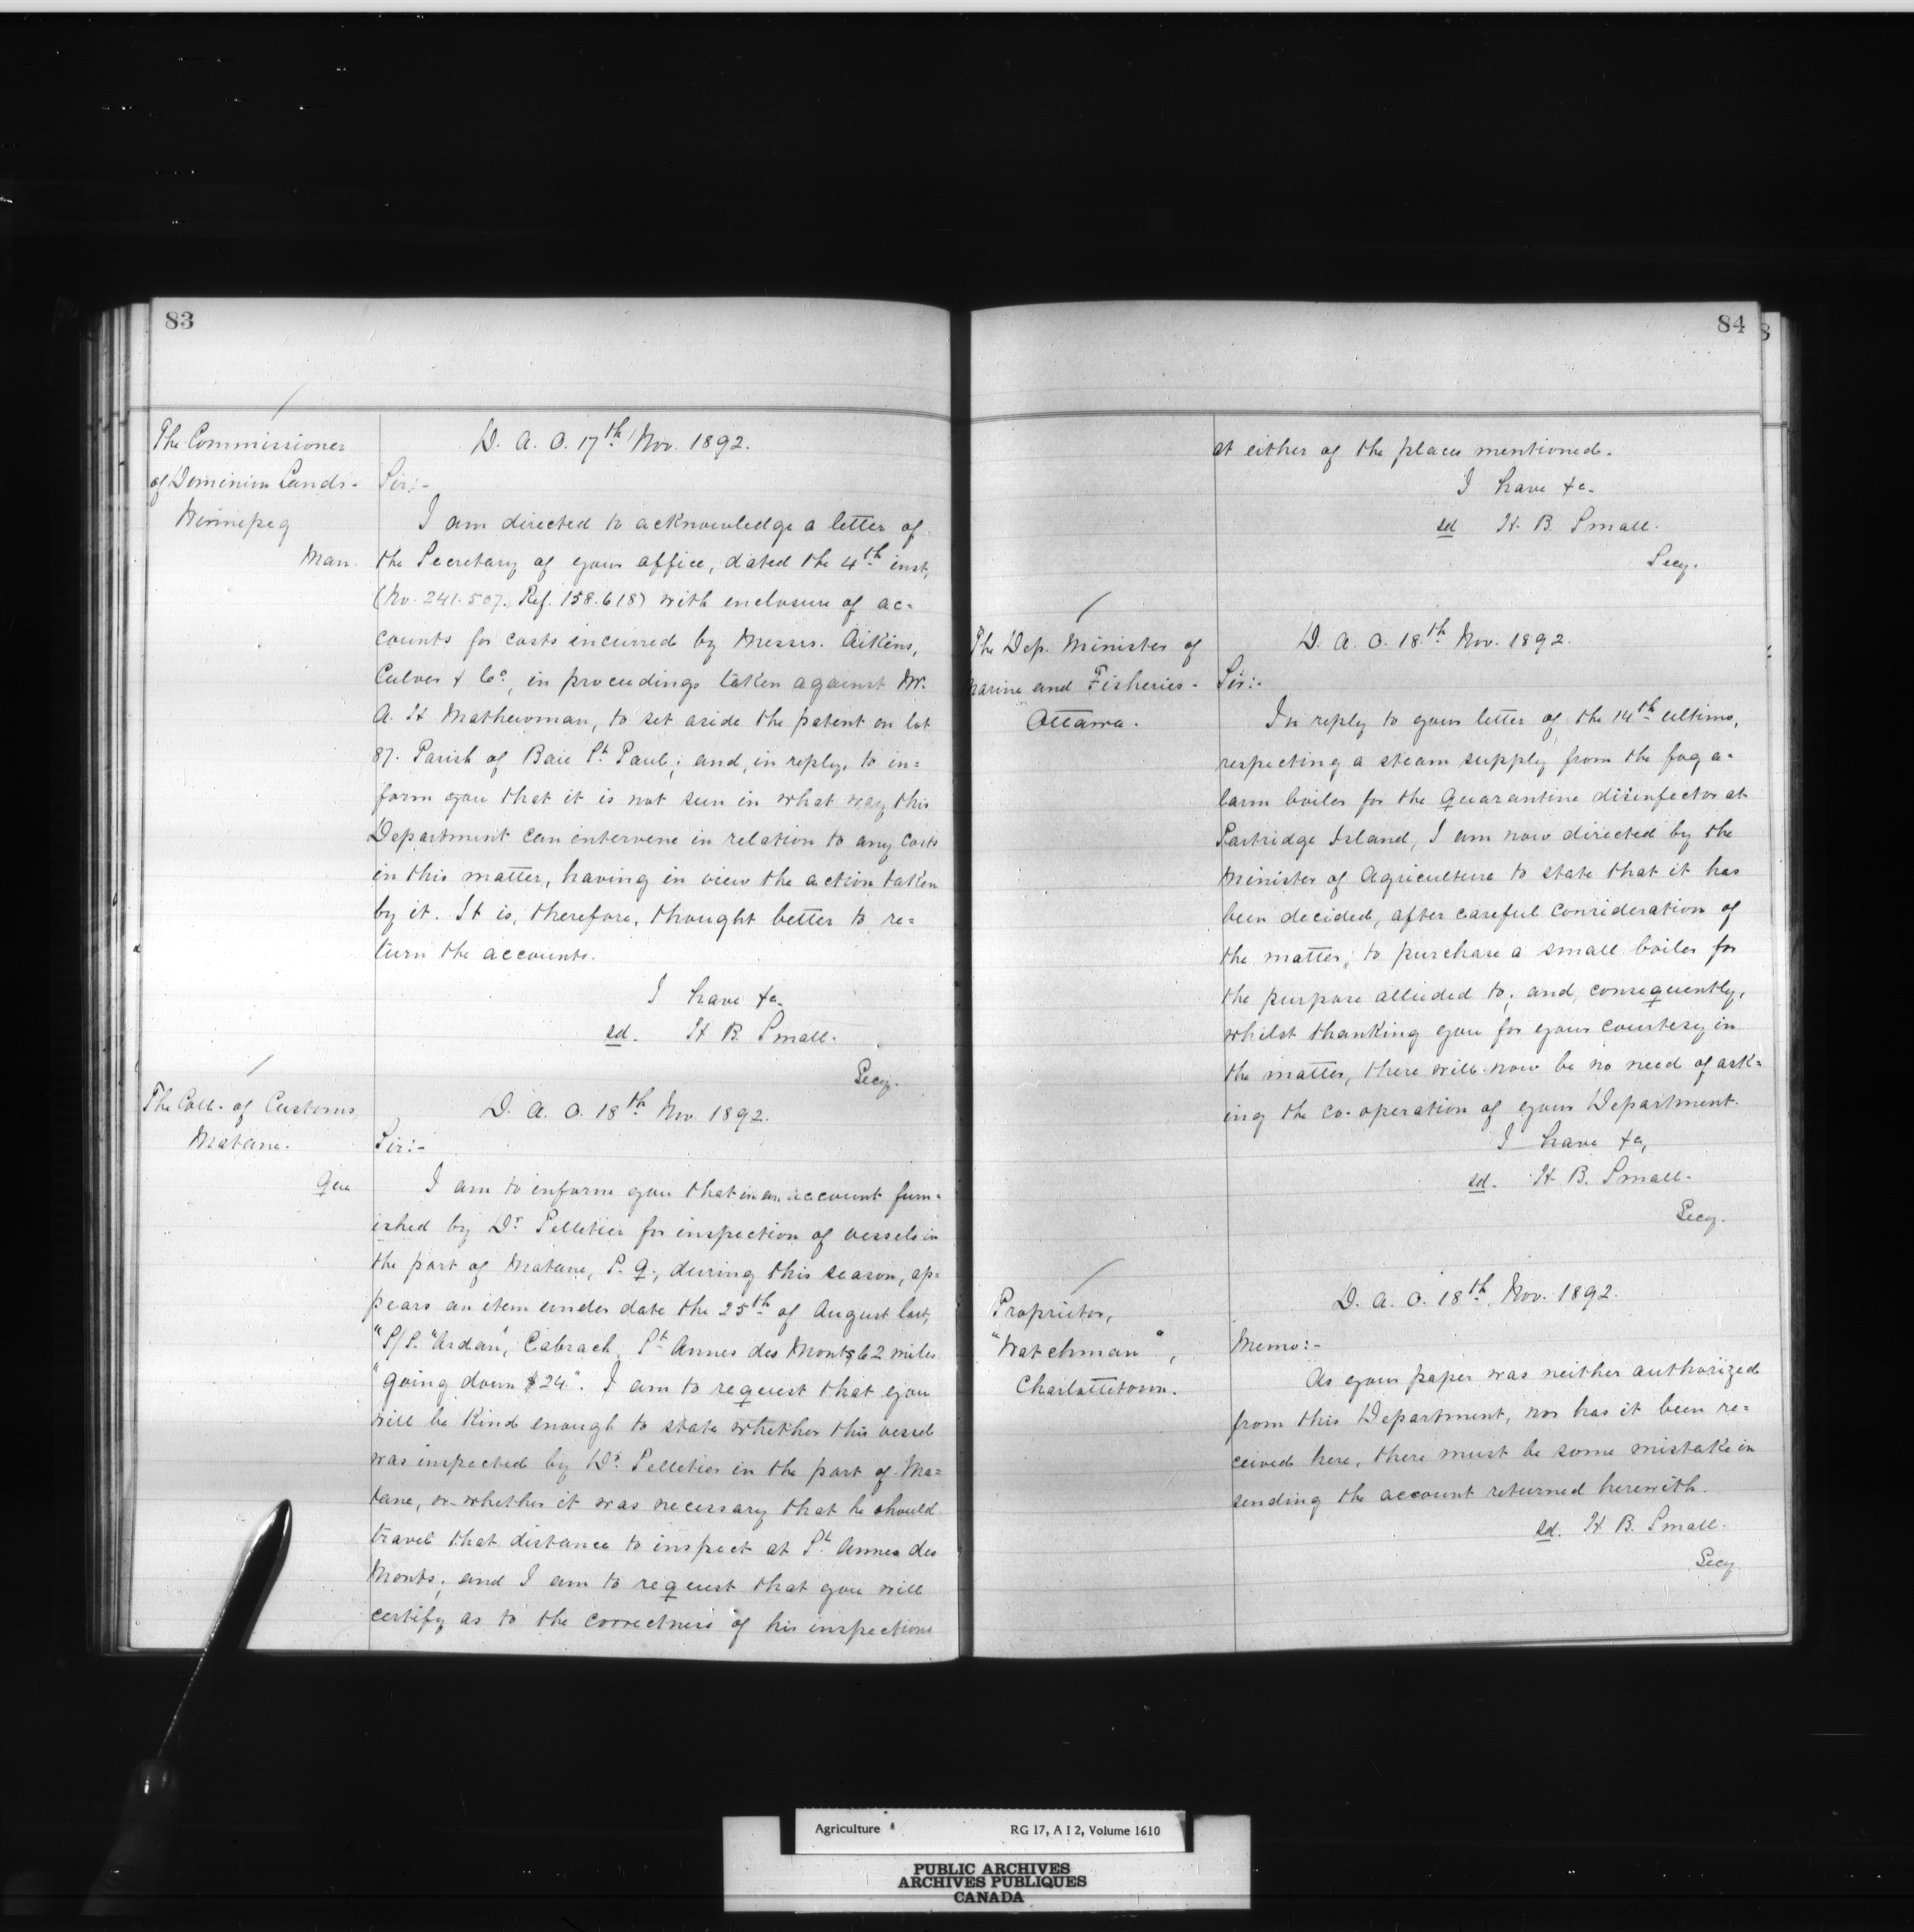 83
The Commissioner
of Dominion Lands.
Winnipeg
Man.
D. A. O. 17th Nov. 1892.
Sir:-
I am directed to acknowledge a letter of
the Secretary of your office, dated the 4th inst,
(No. 241.507. Ref. 158.618) with enclosure of ac=
counts for costs incurred by Messrs. Aikins,
Culver & Co, in proceedings taken against Mr.
A. H Mathewman, to set aside the patent on lot
87. Parish of Baie St Paul; and, in reply, to in=
form you that it is not seen in what way this
Department can intervene in relation to any costs
in this matter, having in view the action taken
by it. It is, therefore, thought better to re=
turn the accounts.
I have &c.
sd. H B. Small.
Secy.
The Coll. of Customs
Matane.
Que
D. A. O. 18th Nov. 1892.
Sir:-
I am to inform you that in an account furn=
ished by Dr Pelletier for inspection of vessels in
the port of Matane, P. Q., during this season, ap=
pears an item under date the 25th of August last,
"S/S. "Ardan", Cabrach, St Annes des Monts 62 miles
"going down $24". I am to request that you
will be kind enough to state whether this vessel
was inspected by Dr Pelletier in the port of Ma=
tane, or whether it was necessary that he should
travel that distance to inspect at St Annes des
Monts; and I am to request that you will
certify as to the correctness of his inspections
84
at either of the places mentioned.
I have &c.
sd H. B. Small.
Secy.
The Dep. Minister of
Marine and Fisheries.
Ottawa.
D. A. O. 18th Nov. 1892.
Sir:-
In reply to your letter of the 14th ultimo,
respecting a steam supply from the fog a=
larm boiler for the Quarantine disinfector at
Partridge Island, I am now directed by the
Minister of Agriculture to state that it has
been decided, after careful consideration of
the matter, to purchase a small boiler for
the purpose alluded to; and, consequently,
whilst thanking you for your courtesy in
the matter, there will now be no need of ask=
ing the co-operation of your Department.
I have &c,
sd. H B. Small.
Secy.
Proprietor,
"Watchman",
Charlottetown.
D. A. O. 18th Nov. 1892.
Memo:-
As your paper was neither authorized
from this Department, nor has it been re=
ceived here, there must be some mistake in
sending the account returned herewith.
sd. H B. Small.
Secy
Agriculture RG 17, A I 2, Volume 1610
PUBLIC ARCHIVES
ARCHIVES PUBLIQUES
CANADA